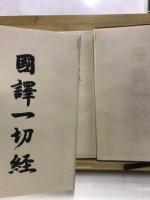 國譯一切經